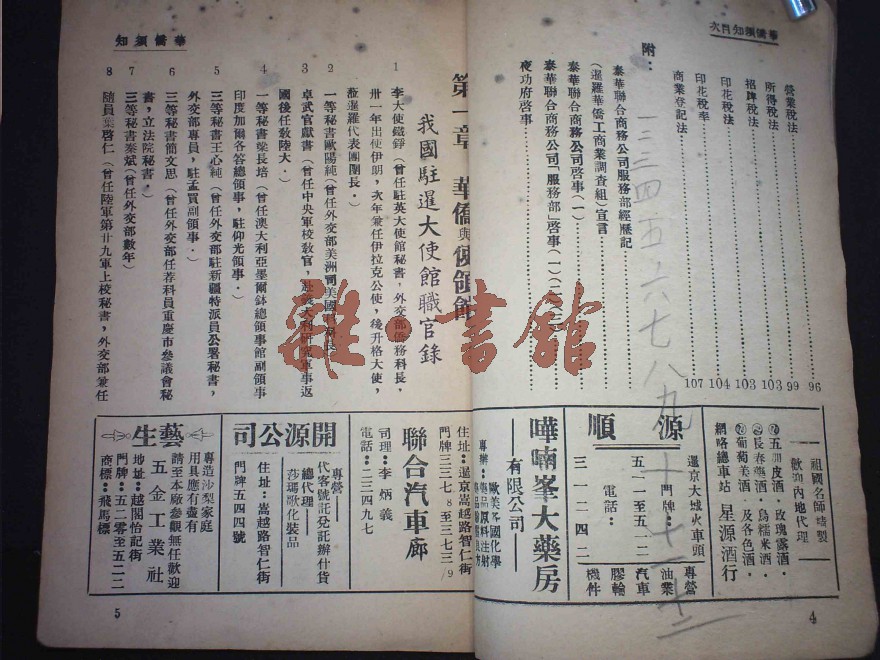 華僑須知目次
營業稅法……96
所得稅法……99
招牌稅法……103
印花稅法……103
印花稅率……104
商業登記法……107
附：
泰華聯合商務公司服務部經歷記
(暹羅華僑工商業調查組)宣言
泰華聯合商務公司啓事(一)
泰華聯合商務公司「服務部」啓事(一)(二)(三)
夜功府啓事
一二三四五六七八九十十一十二
祖國名師精製
歡迎內地代理
五加皮酒．玫瑰露酒．
長春藥酒．烏糯米酒．
葡萄美酒．及各色酒．
網咯總車站 星源酒行
源順
暹京大城火車頭
門牌：
五一一至五一二
電話：
三一二四二
專營
油業
汽車
膠輪
機件
嘩喃峯大藥房
有限公司
專辦：
歐美各國化學
4
華僑須知
第一章 華僑與使領館
我國駐暹大使館職官錄
1 李大使鐵錚(曾任駐英大使館秘書，外交部僑務科長，
卅一年出使伊朗，次年兼任伊拉克公使，後升格大使，
蒞暹羅代表團團長．)
2 一等秘書歐陽純(曾任外交部美洲司美國
3 卓武官獻書(曾任中央軍校教官，赴義大利研究軍事返
國後任教陸大．)
4 一等秘書梁長培(曾任澳大利亞墨爾鉢總領事館副領事
印度加爾各答總領事，駐仰光領事．)
5 三等秘書王心純(曾任外交部駐新疆特派員公署秘書，
外交部專員，駐孟買副領事．)
6 三等秘書簡文思(曾任外交部任荐科員重慶市參議會秘
書，立法院秘書．)
7 三等秘書秦斌(曾任外交部數年)
8 隨員葉啓仁(曾任陸軍第廿九軍上校秘書，外交部兼任
聯合汽車廊
住址：暹京嵩越路智仁街
門牌三三七、8至三七三/9
司理：李炳義
電話：二三四九七
開源公司
專營
代客號託兌託辦什貨
總代理
莎瑪歌化裝品
住址：嵩越路智仁街
門牌五四四號
藝生
五金工業社
專造沙梨家庭
用具應有盡有
請至本廠參觀無任歡迎
地址：越閣怡記街
門牌：五二零至五二二
商標：飛馬標
5
雜·書館